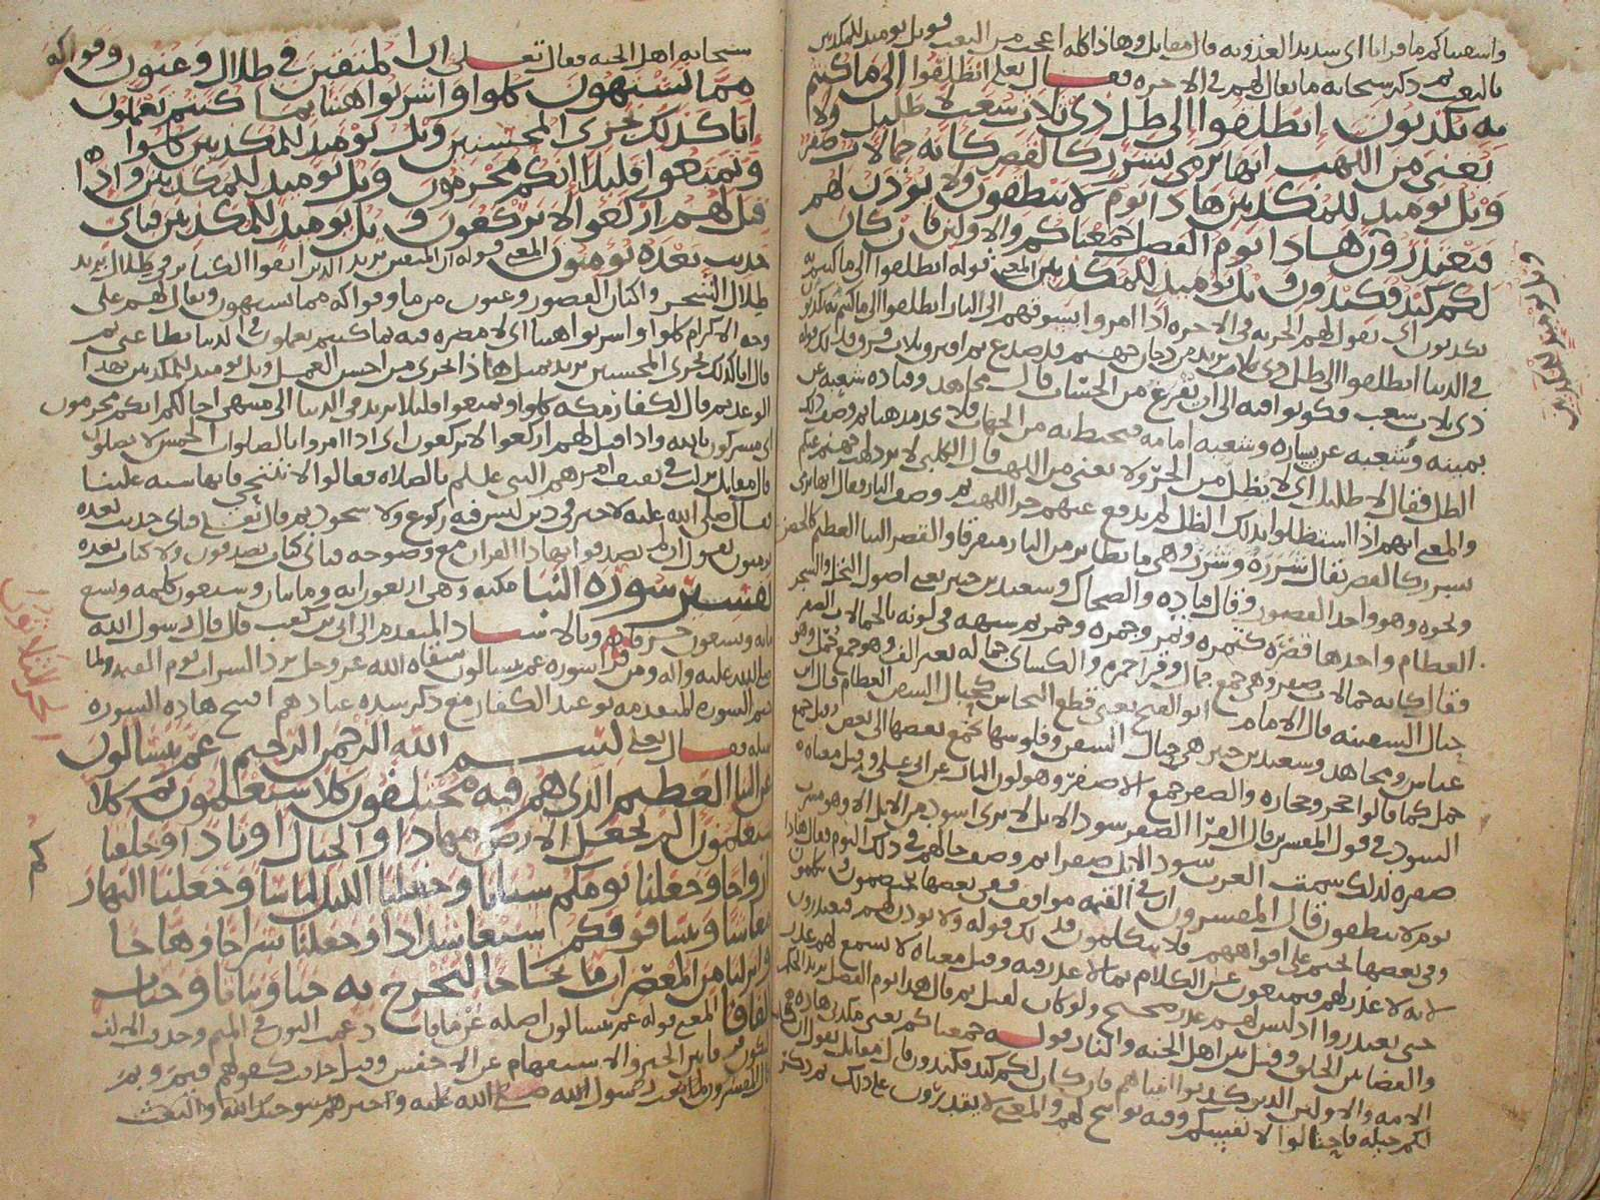 واسقيناكم ما فراتا اى شديد العذوبه قال مقاتل وهاذا كله اعجب من البعث فويل يوميذ للمكذبين
بالبعث ثم ذكر سبحانه ما يقال لهم فى الاخره فقال تعلى انطلقوا الى ما كنتم
به تكذبون انطلقوا الى ظل ذى ثلاث شعب لا ظليل ولا
يغنى من اللهب انها ترمى بشرر كالقصر كانه جمالات صفر
ويل يوميذ للمكذبين هاذا يوم لا ينطقون ولا يوذن لهم
فيعتذرون هاذا يوم الفصل جمعناكم والاولين فان كان
لكم كيد فكيدون ويل يوميذ للمكذبين المعنى قوله انطلقوا الى ما كنتم به
تكذبون اى يقول لهم الخزنه فى الاخره
فى الدنيا انطلقوا الى ظل ذى ثلاث
ذى ثلاث شعب فكونوا فيه الى ان يفرغ من الحساب قال مجاهد وقتاده شعبه عن
يمينه وشعبه عن يساره وشعبه امامه فيحيط به من الجهات
الظل فقال لا ظليل اى لا يظل من الحر ولا يغنى من اللهب قال الكلبى لا يرد لهب جهنم عنكم
والمعنى انهم اذا استظلوا بذلك الظل لم يدفع عنهم حر اللهب ثم وصف النار فقال انها ترمى
بشرر كالقصر يقال شرره وشرر وهى ما تطاير من النار متفرقا والقصر البنا العظيم كالحصن
ونحوه وهو واحد القصور وقال قتاده والضحاك وسعيد بن جبير يعنى اصول النخل والشجر
العظام واحدها قصره كتمره وتمر وجمره وجمر ثم شبهه فى لونه بالجمالات الصفر
فقال كانه جمالات صفر وهى جمع جمال وقرا حمزه والكساى جماله بغير الف وهو جمع جمل وهو
حبال السفينه قال الامام ابو الفتح يعنى قطع النحاس كحبال السفن العظام قال ابن
عباس ومجاهد وسعيد بن جبير هى حبال السفن وقلوسها يجمع بعضها الى بعض وقيل جمع
جمل كما قالوا حجر وحجاره والصفر جمع الاصفر وهو لون النار عن ابى على وقيل معناه
السود فى قول المفسرين قال الفرا الصفر سود الابل لا يرى اسود من الابل الا وهو مشرب
صفره لذلك سمت العرب سود الابل صفرا ثم وصف حالهم فى ذلك اليوم فقال هاذا
يوم لا ينطقون قال المفسرون ان فى القيمه مواقف ففى بعضها يختصمون ويتكلمون
وفى بعضها يختم على افواههم فلا يتكلمون فذلك قوله ولا يوذن لهم فيعتذرون
لانه لا عذر لهم فيمنعون عن الكلام بما لا عذر فيه وقيل معناه لا يسمع لهم عذر
حتى يعتذروا اذ ليس لهم عذر صحيح ولو كان لقبل ثم قال هذا يوم الفصل يريد الحكم
والقضا بين الخلق وقيل بين اهل الجنه والنار قوله جمعناكم يعنى مكذبى هاذه
الامه والاولين الذين كذبوا انبياهم فان كان لكم كيد فكيدون قال مقاتل يقول ان كان
لكم حيله فاحتالوا لانفسكم وفيه توبيخ لهم والمعنى لا يقدرون على ذلك ثم ذكر
ويل يوميذ للمكذبين
سبحانه اهل الجنه فقال تعلى ان المتقين فى ظلال وعيون وفواكه
مما يشتهون كلوا واشربوا هنيا بما كنتم تعملون
انا كذلك نجزى المحسنين ويل يوميذ للمكذبين كلوا
وتمتعوا قليلا انكم مجرمون ويل يوميذ للمكذبين واذا
قيل لهم اركعوا لا يركعون ويل يوميذ للمكذبين فباى
حديث بعده يومنون المعنى قوله ان المتقين يريد الذين اتقوا الكباير فى ظلال يريد
ظلال الشجر واكنان القصور وعيون من ما وفواكه مما يشتهون ويقال لهم على
وجه الاكرام كلوا واشربوا هنيا اى لا مضره فيه بما كنتم تعملون فى الدنيا بطاعتى ثم
قال انا كذلك نجزى المحسنين يريد بمثل هاذا الجزى من احسن العمل ويل يوميذ للمكذبين بهذا
الوعد ثم قال لكفار مكه كلوا وتمتعوا قليلا يريد فى الدنيا الى منتهى اجالكم انكم مجرمون
اى مشركون بالله واذا قيل لهم اركعوا لا يركعون اى اذا امروا بالصلوات الخمس لا يصلون
قال مقاتل نزلت فى ثقيف امرهم النبى عللم بالصلاه فقالوا لا ننحنى فانها سبه علينا
فقال صلى الله عليه لا خير فى دين ليس فيه ركوع ولا سجود ثم قال تعلى فباى حديث بعده
يومنون يقول ان لم يصدقوا بهاذا القران مع وضوحه فباى كتاب يصدقون ولا كتاب بعده
تفسير سوره النبا مكيه وهى اربعون ايه وماتان وسبعون كلمه وتسع
مايه وتسعون حرفا وبالاسناد المتقدم الى ابى بن كعب قال قال رسول الله
صلى الله عليه واله ومن قرا سوره عم يتسالون سقاه الله عز وجل برد الشراب يوم القيمه ولما
ختم السوره المتقدمه بوعيد الكفار مع ذكر شده عنادهم افتتح هاذه السوره
بمثله فقال تعلى بسم الله الرحمن الرحيم عم يتسالون
عن النبا العظيم الذى هم فيه مختلفون كلا سيعلمون ثم كلا
سيعلمون الم نجعل الارض مهادا والجبال اوتادا وخلقناكم
ازواجا وجعلنا نومكم سباتا وجعلنا الليل لباسا وجعلنا النهار
معاشا وبنينا فوقكم سبعا شدادا وجعلنا سراجا وهاجا
وانزلنا من المعصرات ما ثجاجا لنخرج به حبا ونباتا وجنات
الفافا المعنى قوله عم يتسالون اصله عن ما فادغمت النون فى الميم وحذفت الالف
ليكون فرقا بين الخبر والاستفهام عن الاخفش وقيل حذفت كقولهم فيم وبم
قال المفسرون لما بعث رسول الله صلى الله عليه واخبرهم بتوحيد الله والبعث